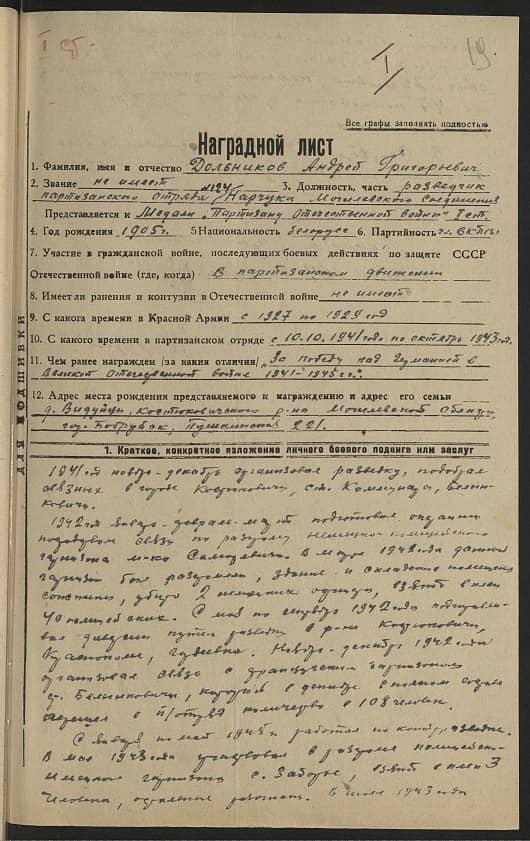 I
19
Все графы заполнять полностью
Наградной лист
1. Фамилия, имя и отчество Дольников Андрей Григорьевич
2. Звание не имеет 3. Должность, часть разведчик
партизанского отряда №124 Могилевского Соединения
Представляется к Медали „Партизану Отечественной войны" I ст.
4. Год рождения 1905г. 5 Национальность белорус 6. Партийность чл. ВКП(б)
7. Участие в гражданской войне, последующих боевых действиях по защите СССР
Отечественной войне (где, когда) В партизанском движении
8. Имеет ли ранения и контузии в Отечественной войне не имеет
9. С какого времени в Красной Армии с 1927 по 1929 год
10. С какого времени в партизанском отряде с 10.10.1941 года по октябрь 1943 год.
11. Чем ранее награжден /за какия отличия/ „За победу над Германией в
Великой Отечественной войне 1941-1945 гг."
12. Адрес места рождения представляемого к награждению и адрес его семьи
д. Видуйцы, Костюковичского р-на Могилевской области,
гор. Бобруйск, Пушкинская 221.
ДЛЯ ПОДШИВКИ
1. Краткое, конкретное изложение личного боевого подвига или заслуг
1941 год ноябрь-декабрь организовал разведку, подобрал
связных в городе Костюковичи, ст. Коммунары, Белын-
ковичи.
1942 год январь-февраль-март подготовил операцию
по разгрому немецко-полицейского
гарнизона м-ко Самотевичи. В марте 1942 года данный
гарнизон был разгромлен, здание и склады помещения
сожжены, убито 2 немецких, взято в плен
40 полицейских. С мая по октябрь 1942 года
вел разведку в р-не Костюковичи,
Краснополье, Гордеевка. Ноябрь-декабрь 1942 года
организовал связь с французским гарнизоном
ст. Белынковичи, который в декабре в полном составе
перешел в п/отряд количество в 108 человек.
С января по май 1943 г работал по контрразведке.
В мае 1943 года участвовал в разгроме полицейско-
немецкого гарнизона с. Заборье, взято в плен 3
человека, В июле 1943 года